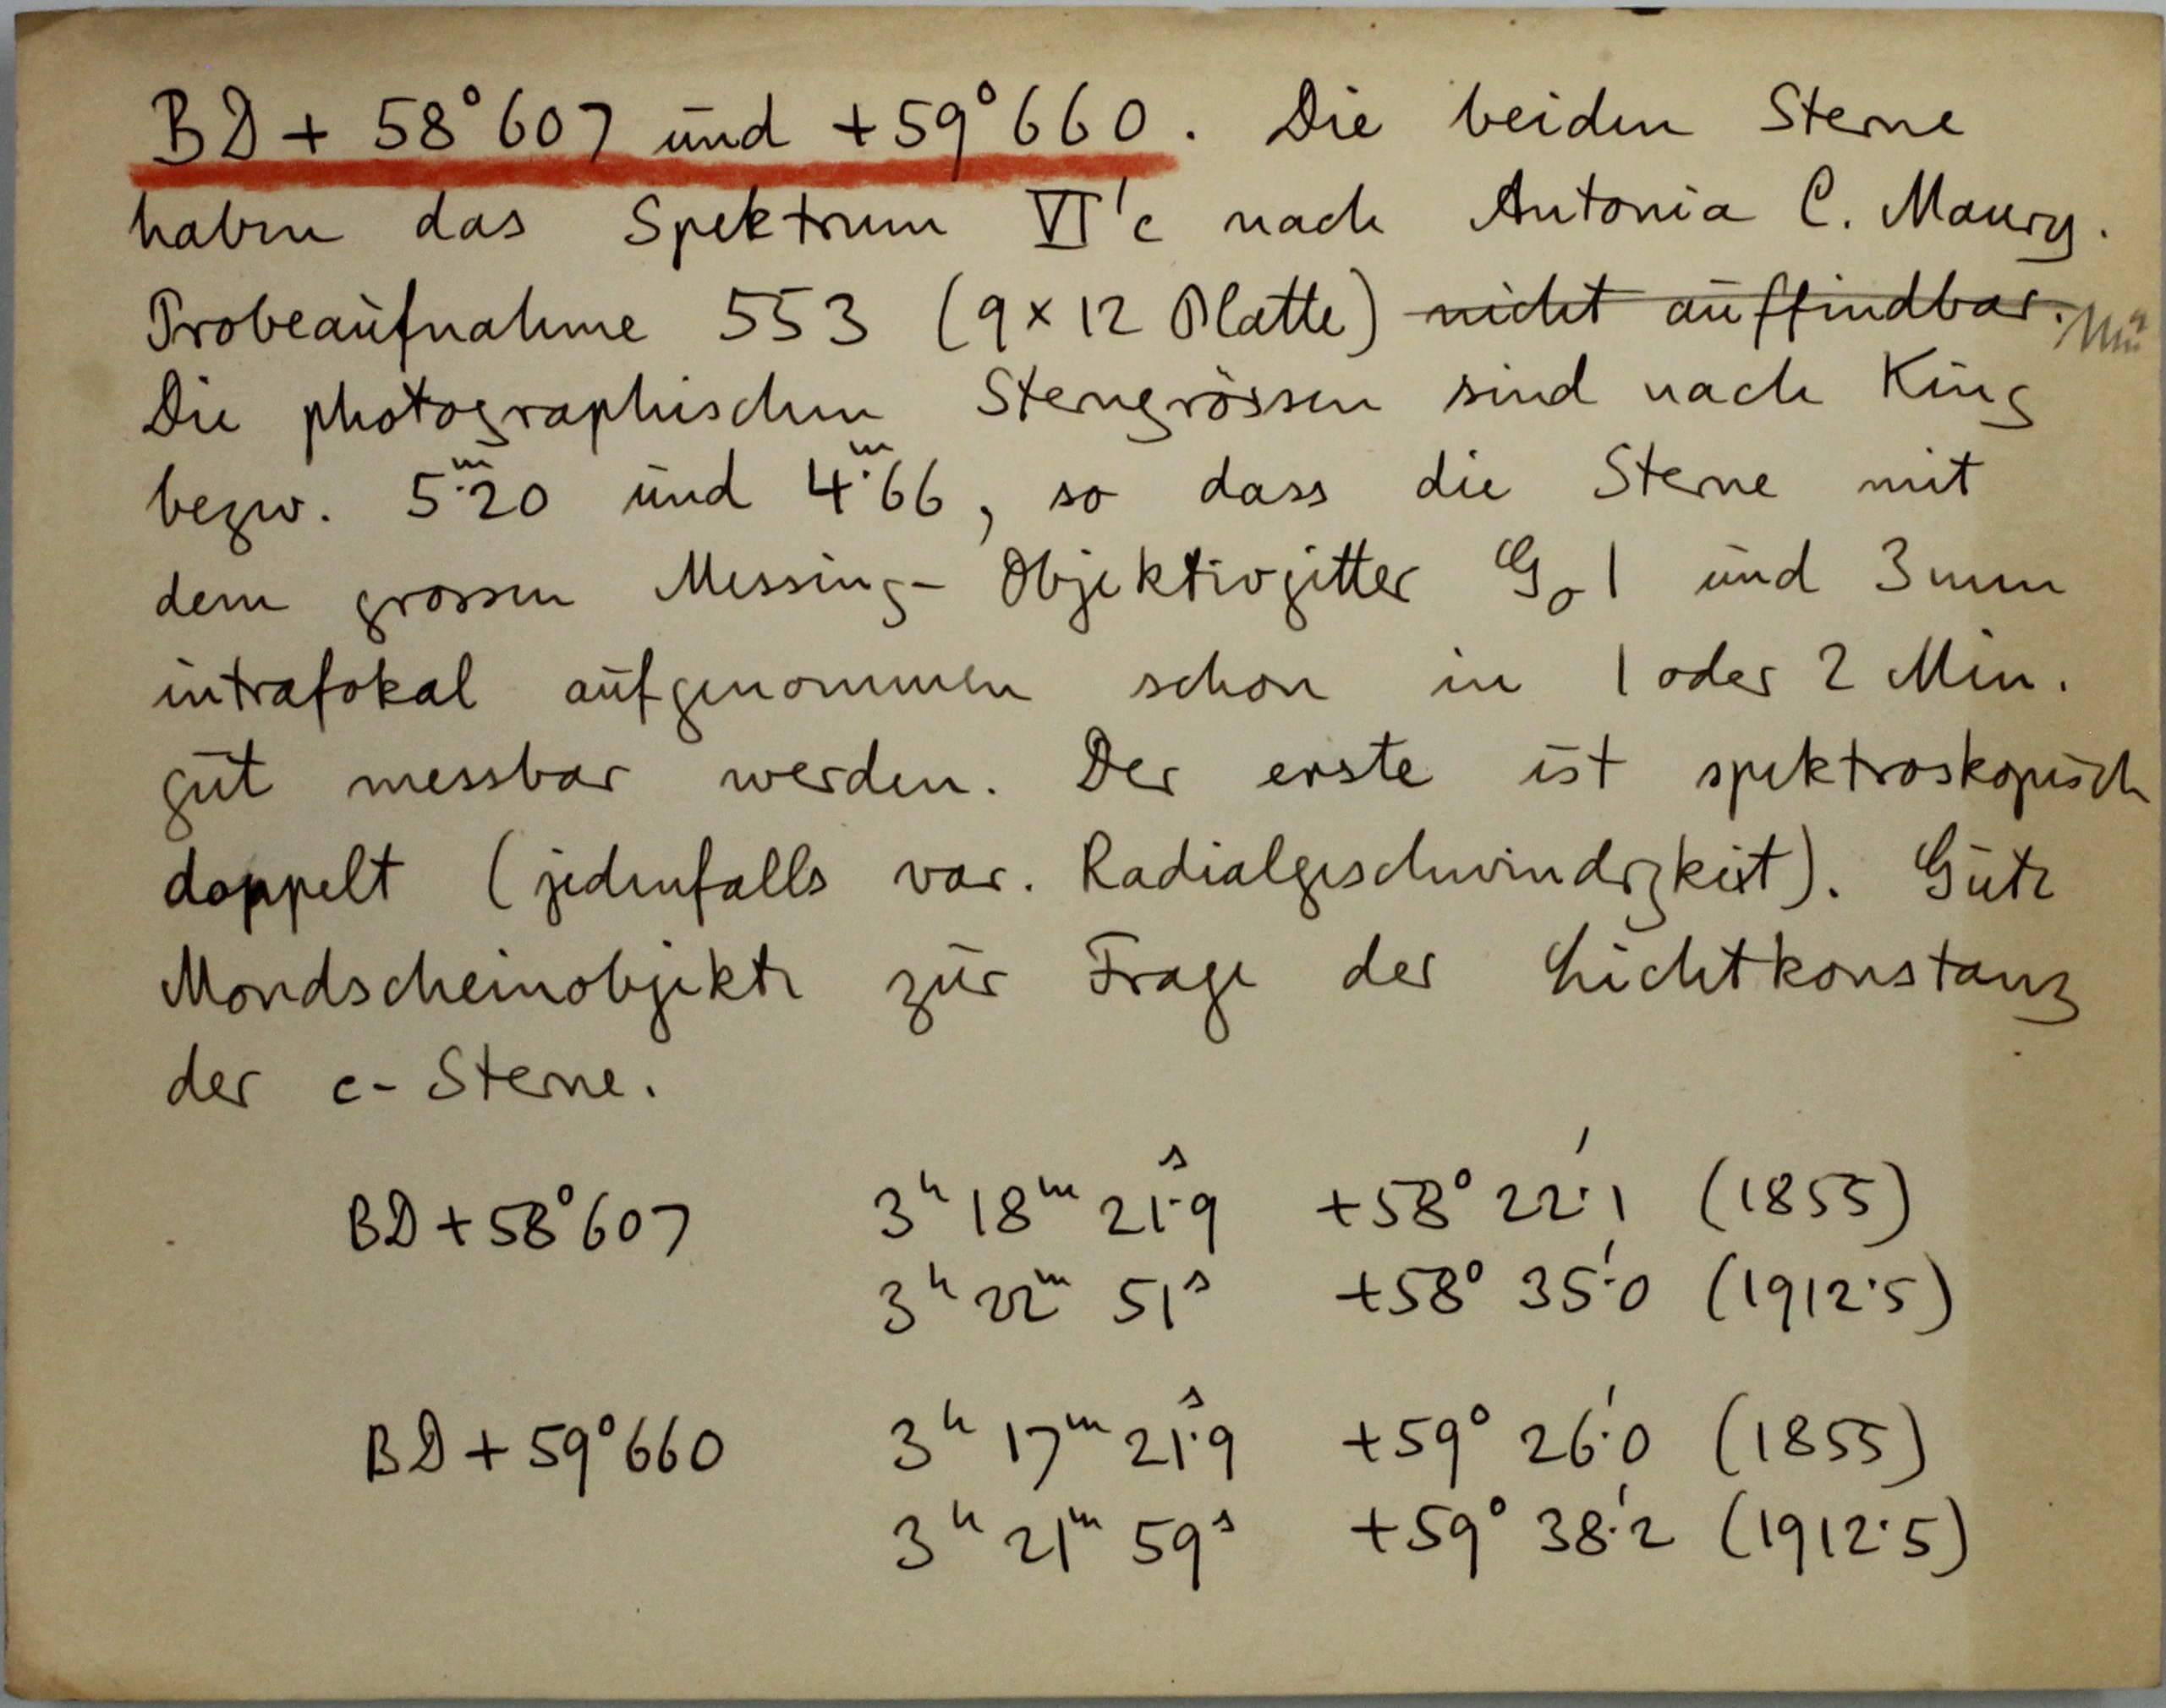 BD + 58° 607 und +59° 660. Die beiden Sterne
haben das Spektrum VI'c nach Antonia C. Maury.
Probeaufnahme 553 (9 x 12 Platte) nicht auffindbar.
Die photographischen Sterngrössen sind nach King
bezw. 5ᵐ.20 und 4ᵐ.66, so dass die Sterne mit
dem grossen Messing-Objektivgitter G₀1 und 3mm
intrafokal aufgenommen schon in 1 oder 2 Min.
gut messbar werden. Der erste ist spektroskopisch
doppelt (jedenfalls var. Radialgeschwindigkeit). Gute
Mondscheinobjekte zur Frage der Lichtkonstanz
der c-Sterne.
BD + 58° 607 3ʰ 18ᵐ 21ˢ.9 +58° 22'.1 (1855)
3ʰ 22ᵐ 51ˢ +58° 35'.0 (1912.5)
BD + 59° 660 3ʰ 17ᵐ 21ˢ.9 +59° 26'.0 (1855)
3ʰ 21ᵐ 59ˢ +59° 38'.2 (1912.5)